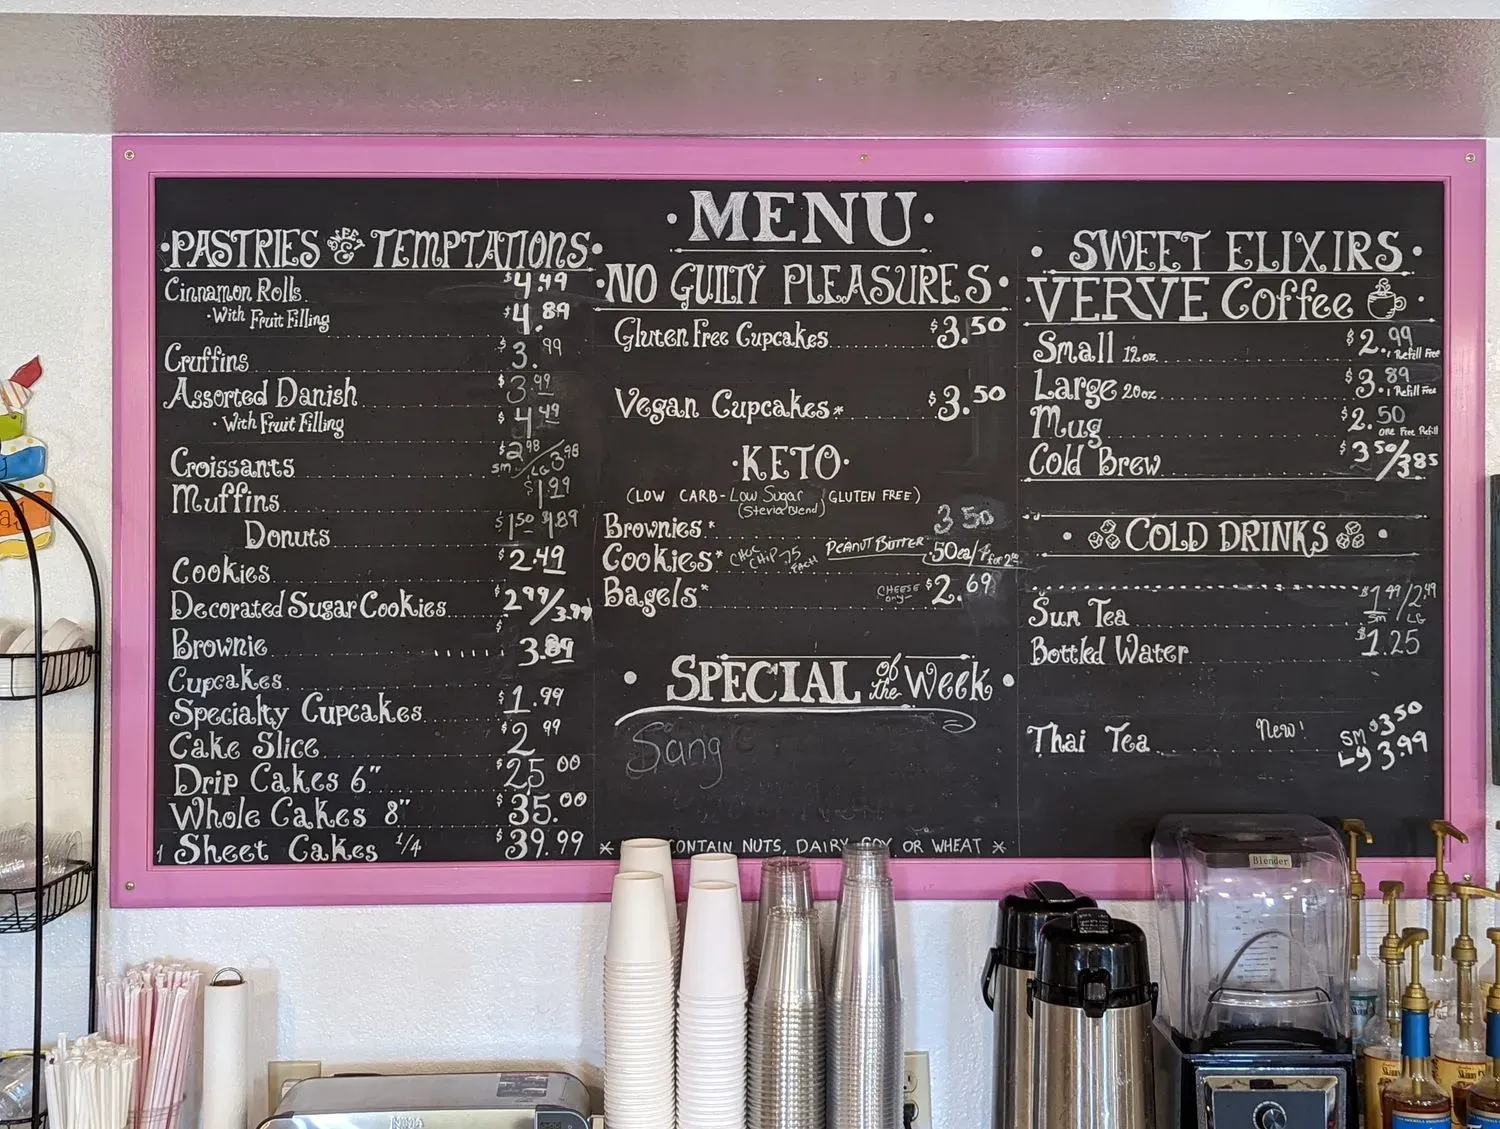 MENU
PASTRIES & SWEET TEMPTATIONS
Cinnamon Rolls $4.49
·With Fruit Filling $4.89
Cruffins $3.99
Assorted Danish $3.99
·With Fruit Filling $4.49
Croissants $2.98 sm / LG 3.98
Muffins $1.99
Donuts $1.50 $1.89
Cookies $2.49
Decorated Sugar Cookies $2.99/3.99
Brownie $3.89
Cupcakes
Specialty Cupcakes $1.99
Cake Slice $2.99
Drip Cakes 6" $25.00
Whole Cakes 8" $35.00
Sheet Cakes 1/4 $39.99
·NO GUILTY PLEASURES·
Gluten Free Cupcakes $3.50
Vegan Cupcakes* $3.50
·KETO·
(LOW CARB - Low Sugar, GLUTEN FREE)
(Stevia Blend)
Brownies* 3.50
Cookies* CHOC CHIP .75 EACH PEANUT BUTTER .50ea/
Bagels* CHEESE only $2.69
·SPECIAL of the Week·
Sang
* CONTAIN NUTS, DAIRY, SOY OR WHEAT *
· SWEET ELIXIRS ·
·VERVE Coffee
Small 12oz. $2.99 1 Refill Free
Large 20oz $3.89 1 Refill Free
Mug $2.50 one Free Refill
Cold Brew $3.50/3.85
· COLD DRINKS ·
Sun Tea $1.49/2.49 sm LG
Bottled Water $1.25
Thai Tea New! sm $3.50
Lg 3.99
Blender